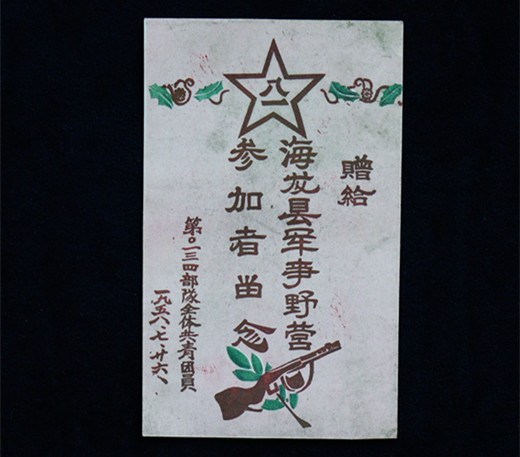 八一
赠给
海龙县军事野营
参加者留念
第〇一三四部隊全体共青团員
一九五八.七.廿六.